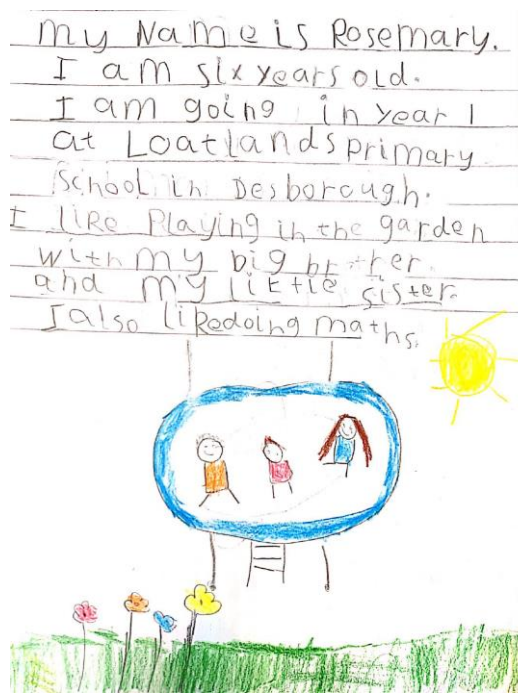 my Name is Rosemary.
I am six years old.
I am going in year 1
at Loatlands primary
School in Desborough.
I like Playing in the garden
with my big brother
and my little sister.
I also like doing maths.